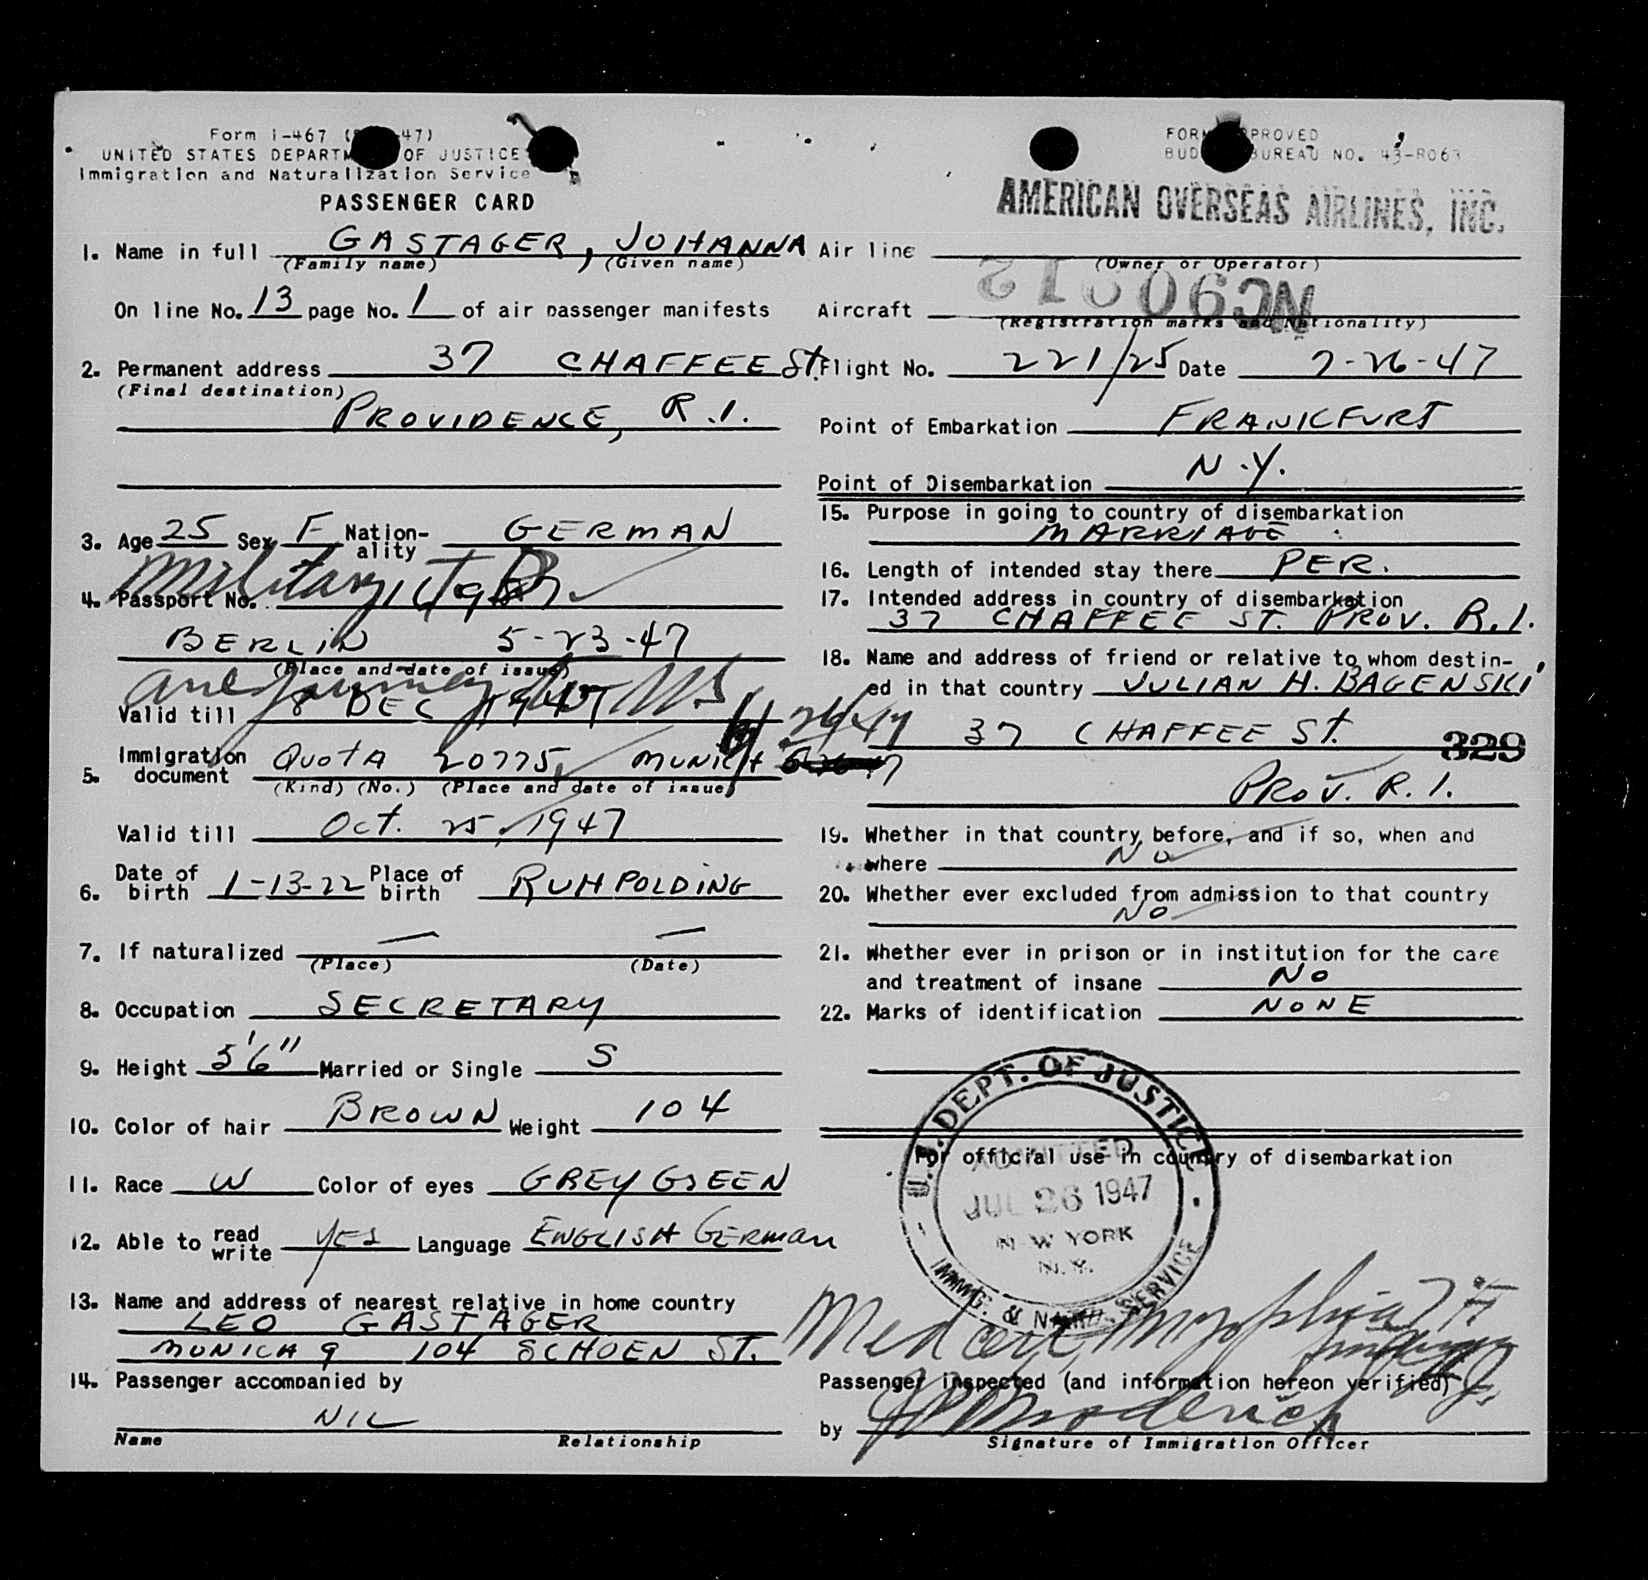 Form I-467 ( -47)
UNITED STATES DEPARTM OF JUSTICE
Immigration and Naturalization Service
PASSENGER CARD
1. Name in full GASTAGER, JOHANNA
(Family name) (Given name)
On line No. 13 page No. 1 of air passenger manifests
2. Permanent address 37 CHAFFEE St.
(Final destination)
PROVIDENCE, R.I.
3. Age 25 Sex F Nation-ality GERMAN
4. Passport No. Military
BERLIN 5-23-47
(Place and date of issue)
Valid till 8 DEC 1947
one journey to US
5. Immigration document QUOTA 20775, MUNICH 6/26/47
(Kind) (No.) (Place and date of issue)
Valid till Oct. 25, 1947
6. Date of birth 1-13-22 Place of birth RUHPOLDING
7. If naturalized — —
(Place) (Date)
8. Occupation SECRETARY
9. Height 5'6" Married or Single S
10. Color of hair BROWN Weight 104
11. Race W Color of eyes GREY GREEN
12. Able to read write YES Language ENGLISH GERMAN
13. Name and address of nearest relative in home country
LEO GASTAGER
MUNICH 9 104 SCHOEN ST.
14. Passenger accompanied by
NIL
Name Relationship
FORM PPROVED
BUD BUREAU NO. 43-R063
AMERICAN OVERSEAS AIRLINES, INC.
Air line
(Owner or Operator)
Aircraft NC90912
(Registration marks and Nationality)
Flight No. 221/25 Date 7-26-47
Point of Embarkation FRANKFURT
Point of Disembarkation N.Y.
15. Purpose in going to country of disembarkation
MARRIAGE
16. Length of intended stay there PER.
17. Intended address in country of disembarkation
37 CHAFFEE ST. PROV. R.I.
18. Name and address of friend or relative to whom destin-
ed in that country JULIAN H. BAGENSKI
37 CHAFFEE St.
329
PROV. R.I.
19. Whether in that country before, and if so, when and
where No
20. Whether ever excluded from admission to that country
No
21. Whether ever in prison or in institution for the care
and treatment of insane No
22. Marks of identification NONE
For official use in country of disembarkation
U.S. DEPT. OF JUSTICE
ADMITTED
JUL 26 1947
NEW YORK
N.Y.
IMMG. & NATZ. SERVICE
Med cert
Passenger inspected (and information hereon verified)
by
Signature of Immigration Officer